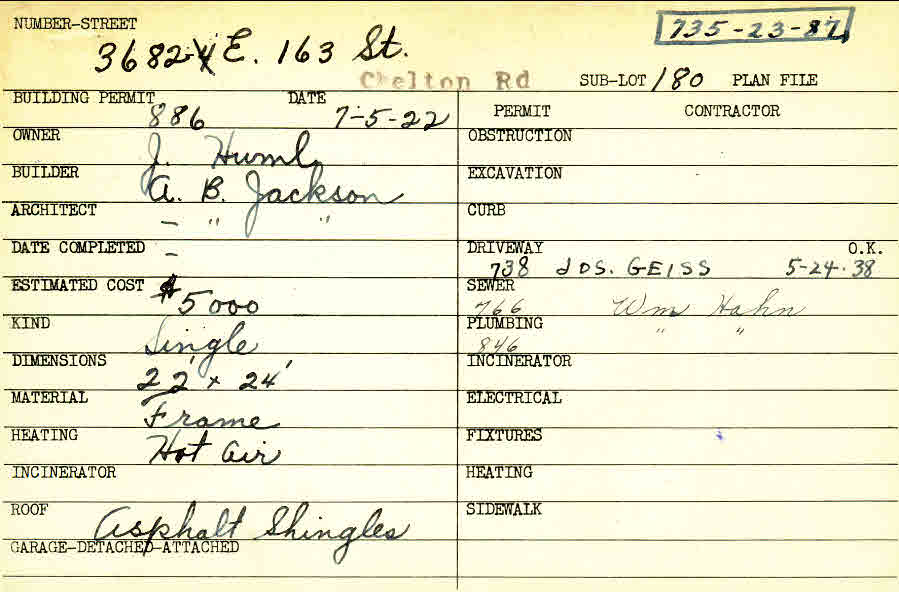 NUMBER-STREET 735-23-87
3682-4 E. 163 St.
Chelton Rd SUB-LOT 180 PLAN FILE
BUILDING PERMIT DATE PERMIT CONTRACTOR
886 7-5-22
OWNER J. Huml OBSTRUCTION
BUILDER A. B. Jackson EXCAVATION
ARCHITECT — " " CURB
DATE COMPLETED — DRIVEWAY O.K.
738 JOS. GEISS 5-24-38
ESTIMATED COST $5000 SEWER
766 Wm Hahn
KIND Single PLUMBING
846 " "
DIMENSIONS 22' x 24' INCINERATOR
MATERIAL Frame ELECTRICAL
HEATING Hot Air FIXTURES
INCINERATOR HEATING
ROOF Asphalt Shingles SIDEWALK
GARAGE-DETACHED-ATTACHED